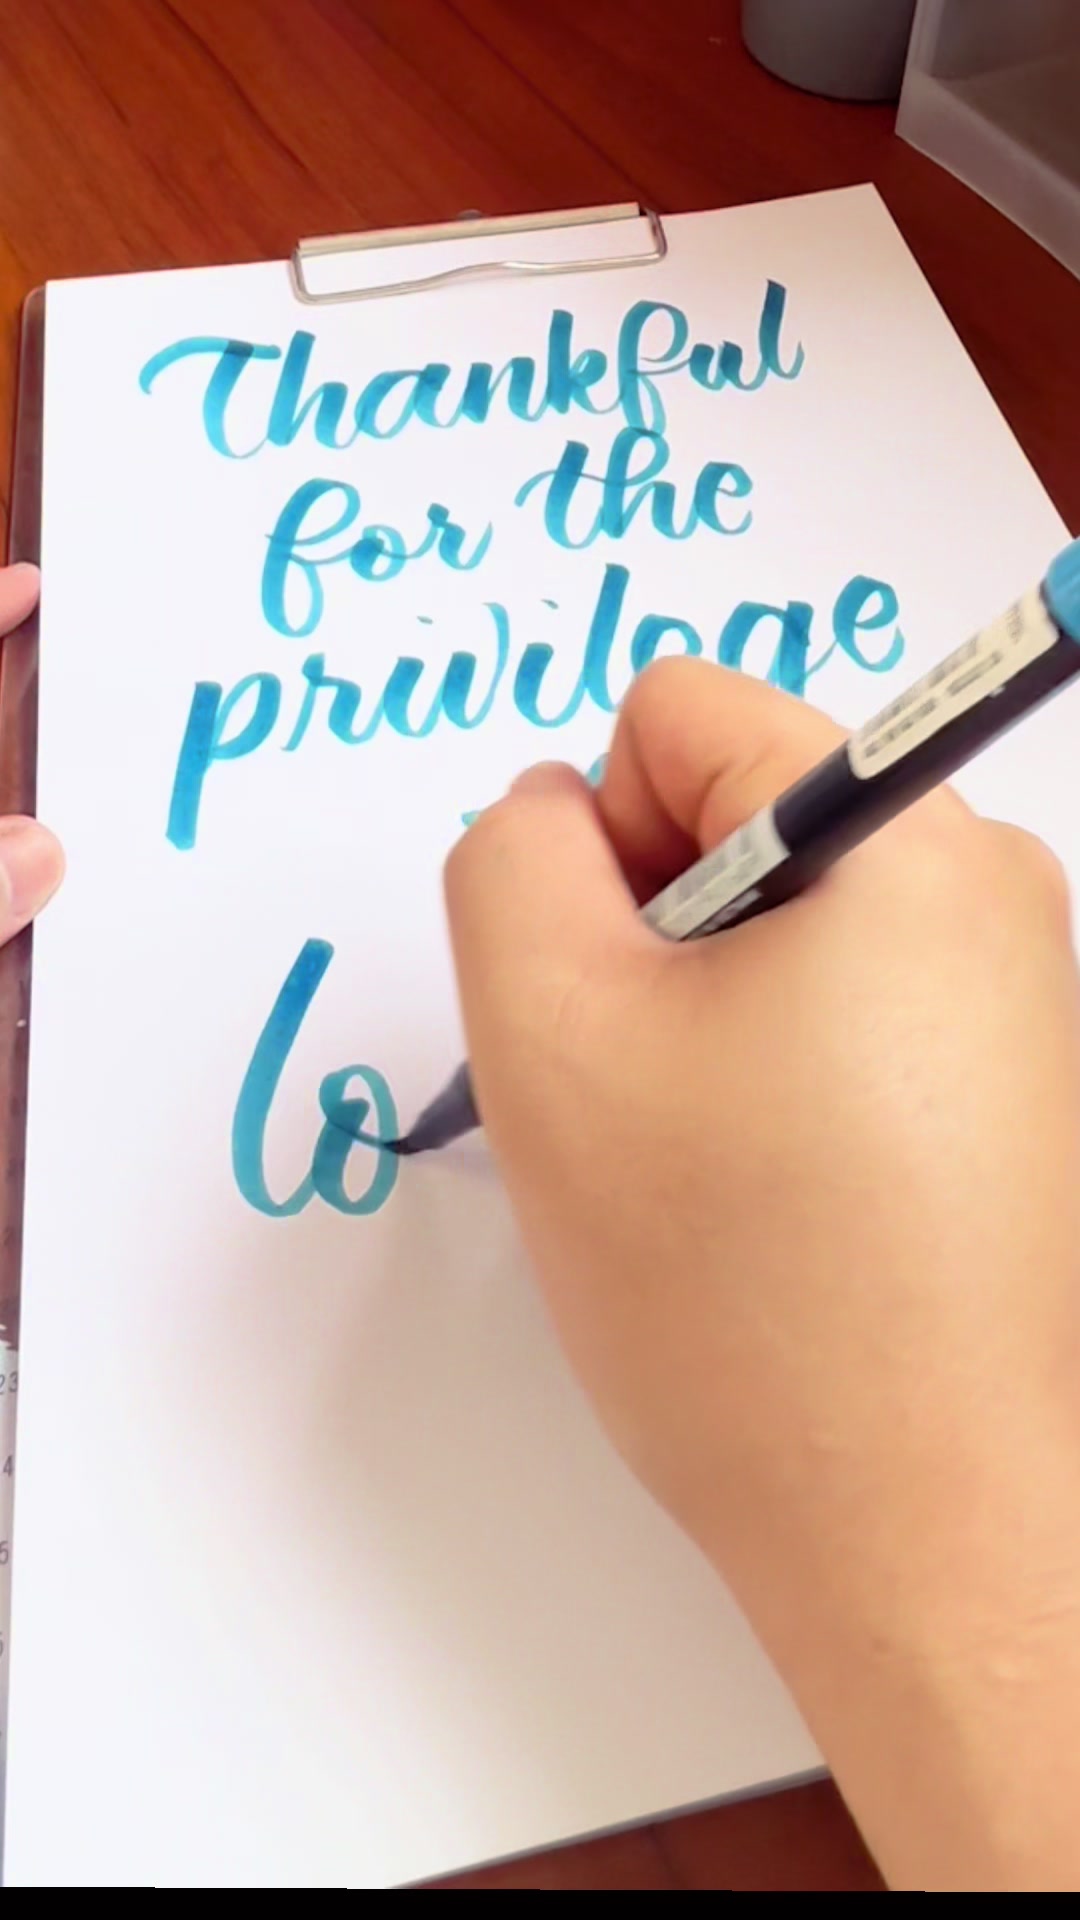 Thankful
for the
privilege
lo
23